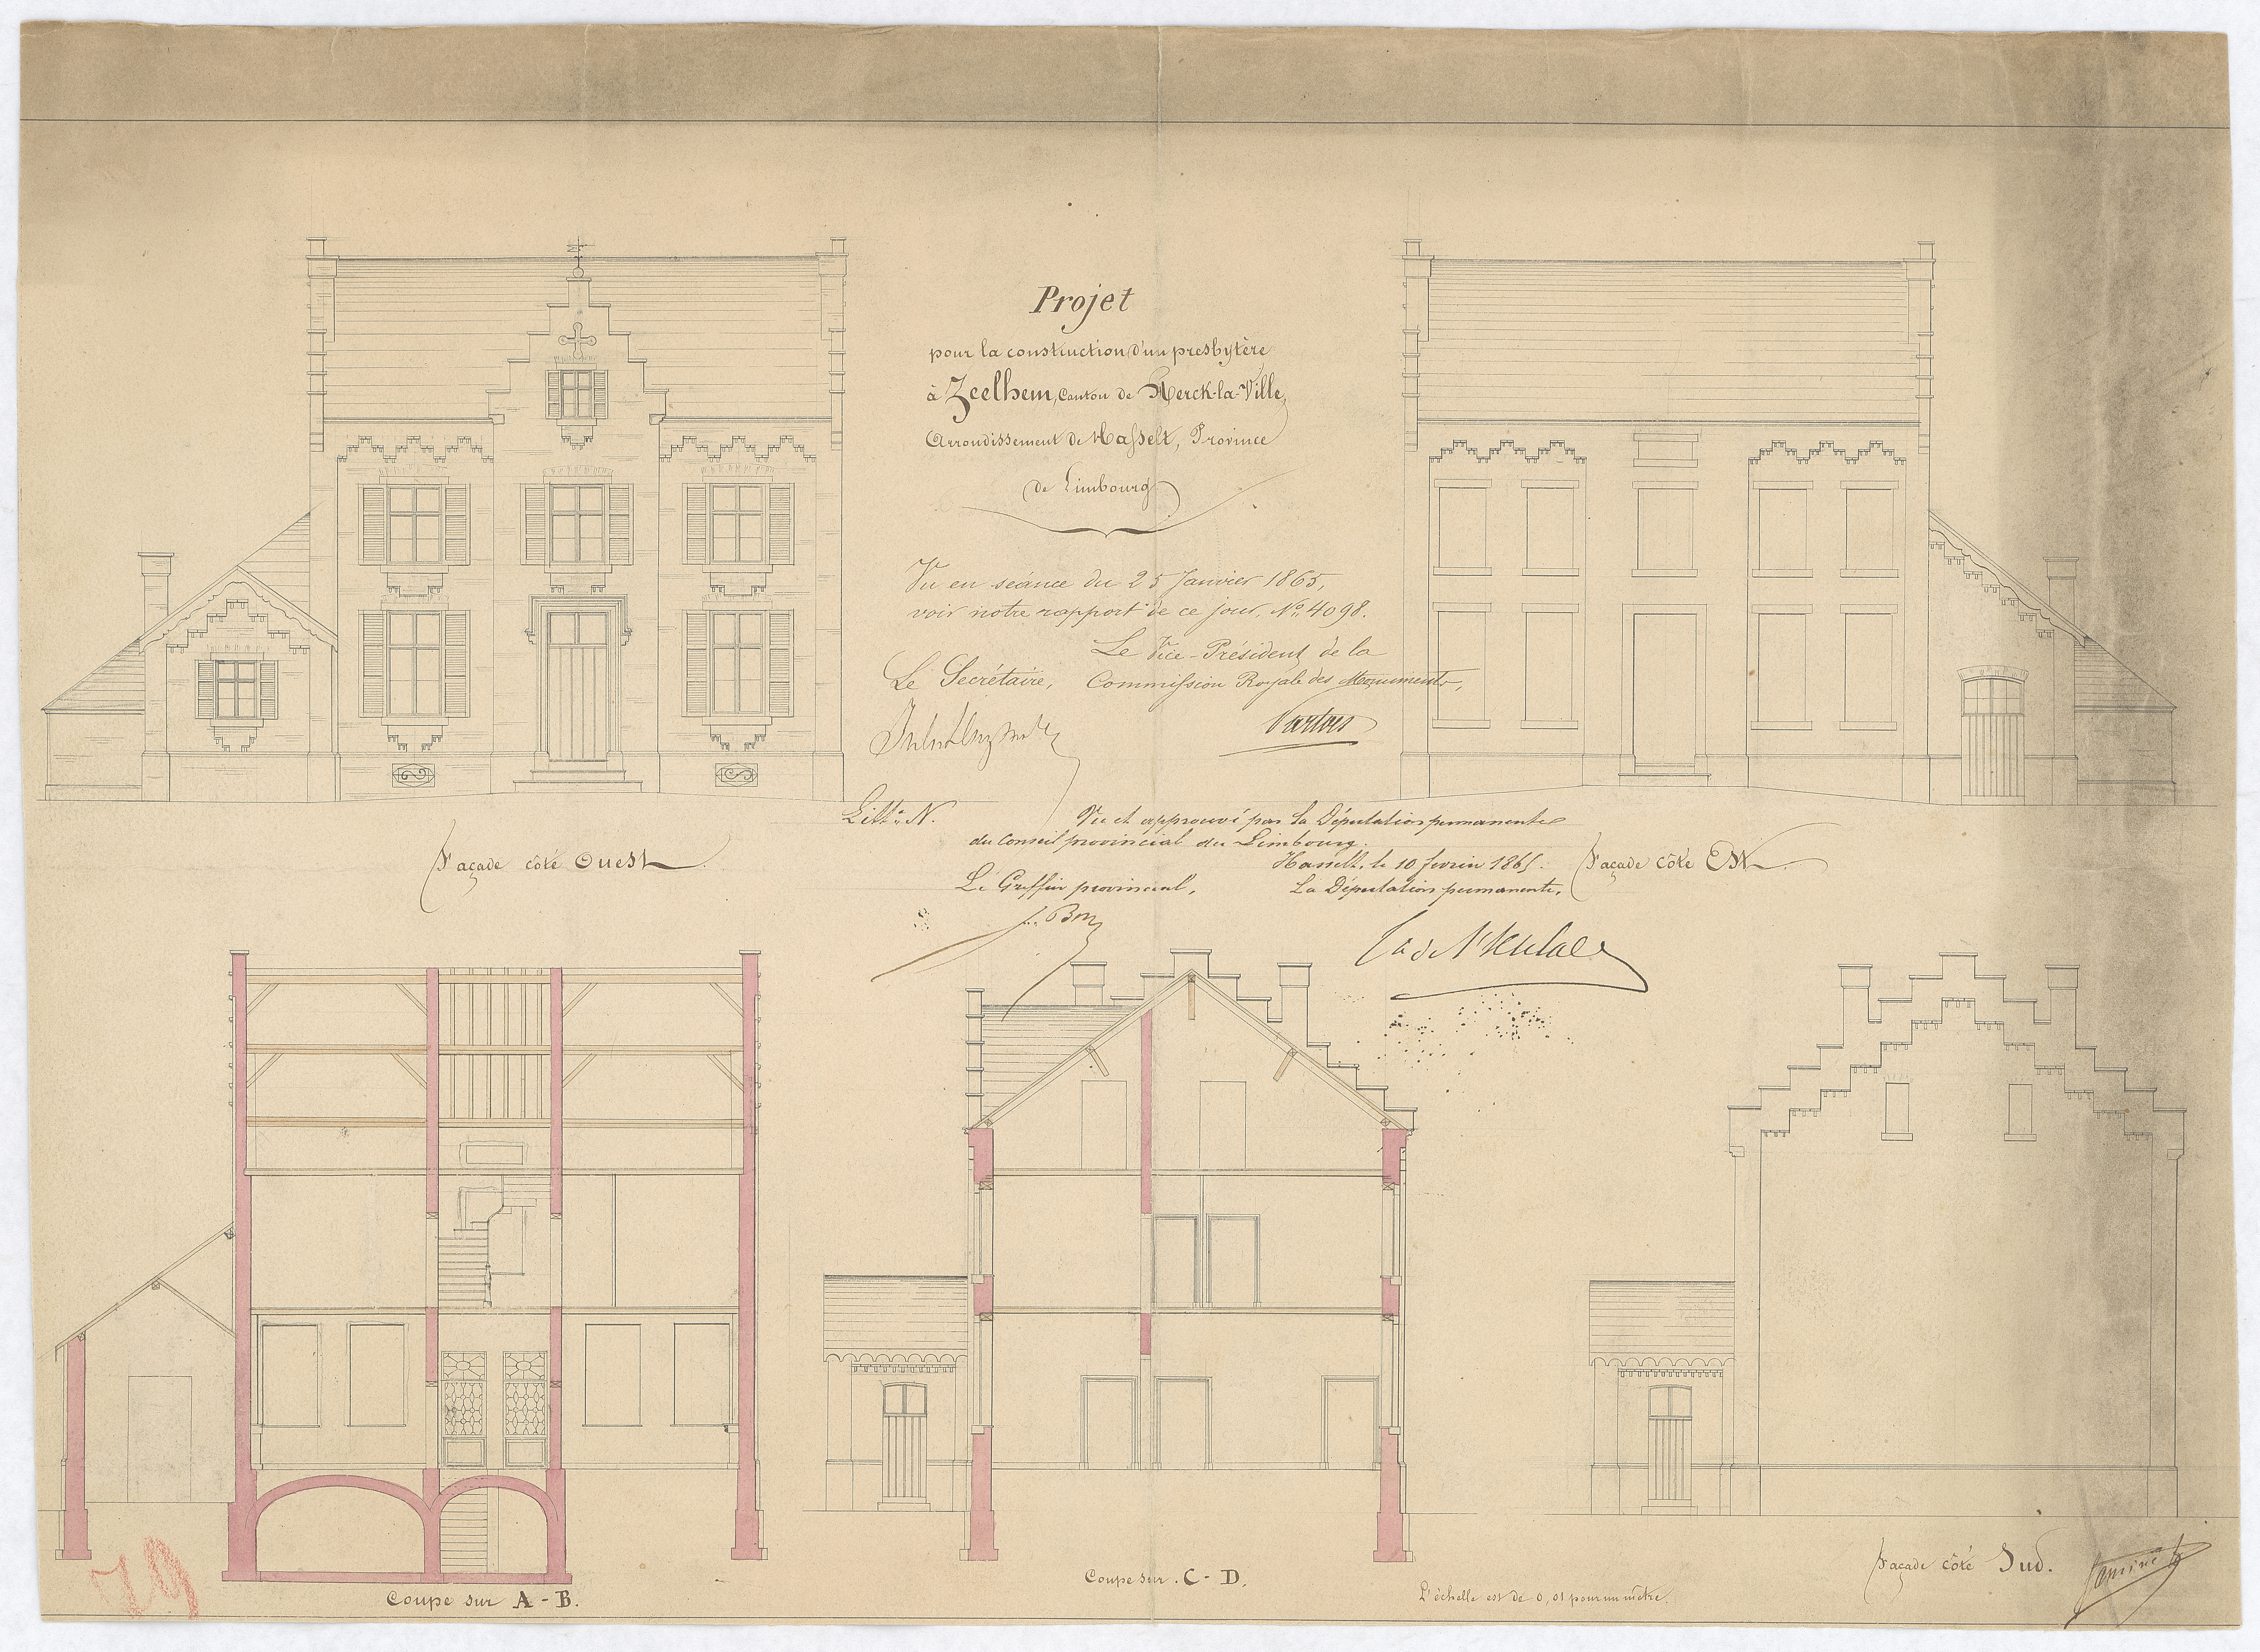 Projet
pour la construction d'un presbytère
à Zeelhem, Canton de Herck-la-Ville,
Arrondissement de Hasselt, Province
de Limbourg
Vu en séance du 25 Janvier 1865,
voir notre rapport de ce jour, No. 4098.
Le Vice-Président de la
Le Secrétaire, Commission Royale des Monuments,
Litt. N.
Vu et approuvé par la Députation permanente
du Conseil provincial du Limbourg.
Hasselt, le 10 fevrier 1865.
Le Greffier provincial, La Députation permanente,
Façade côté Ouest
Façade côté Est
Coupe sur A - B.
Coupe sur C - D.
Façade côté Sud.
L'échelle est de 0,01 pour un mètre.
79